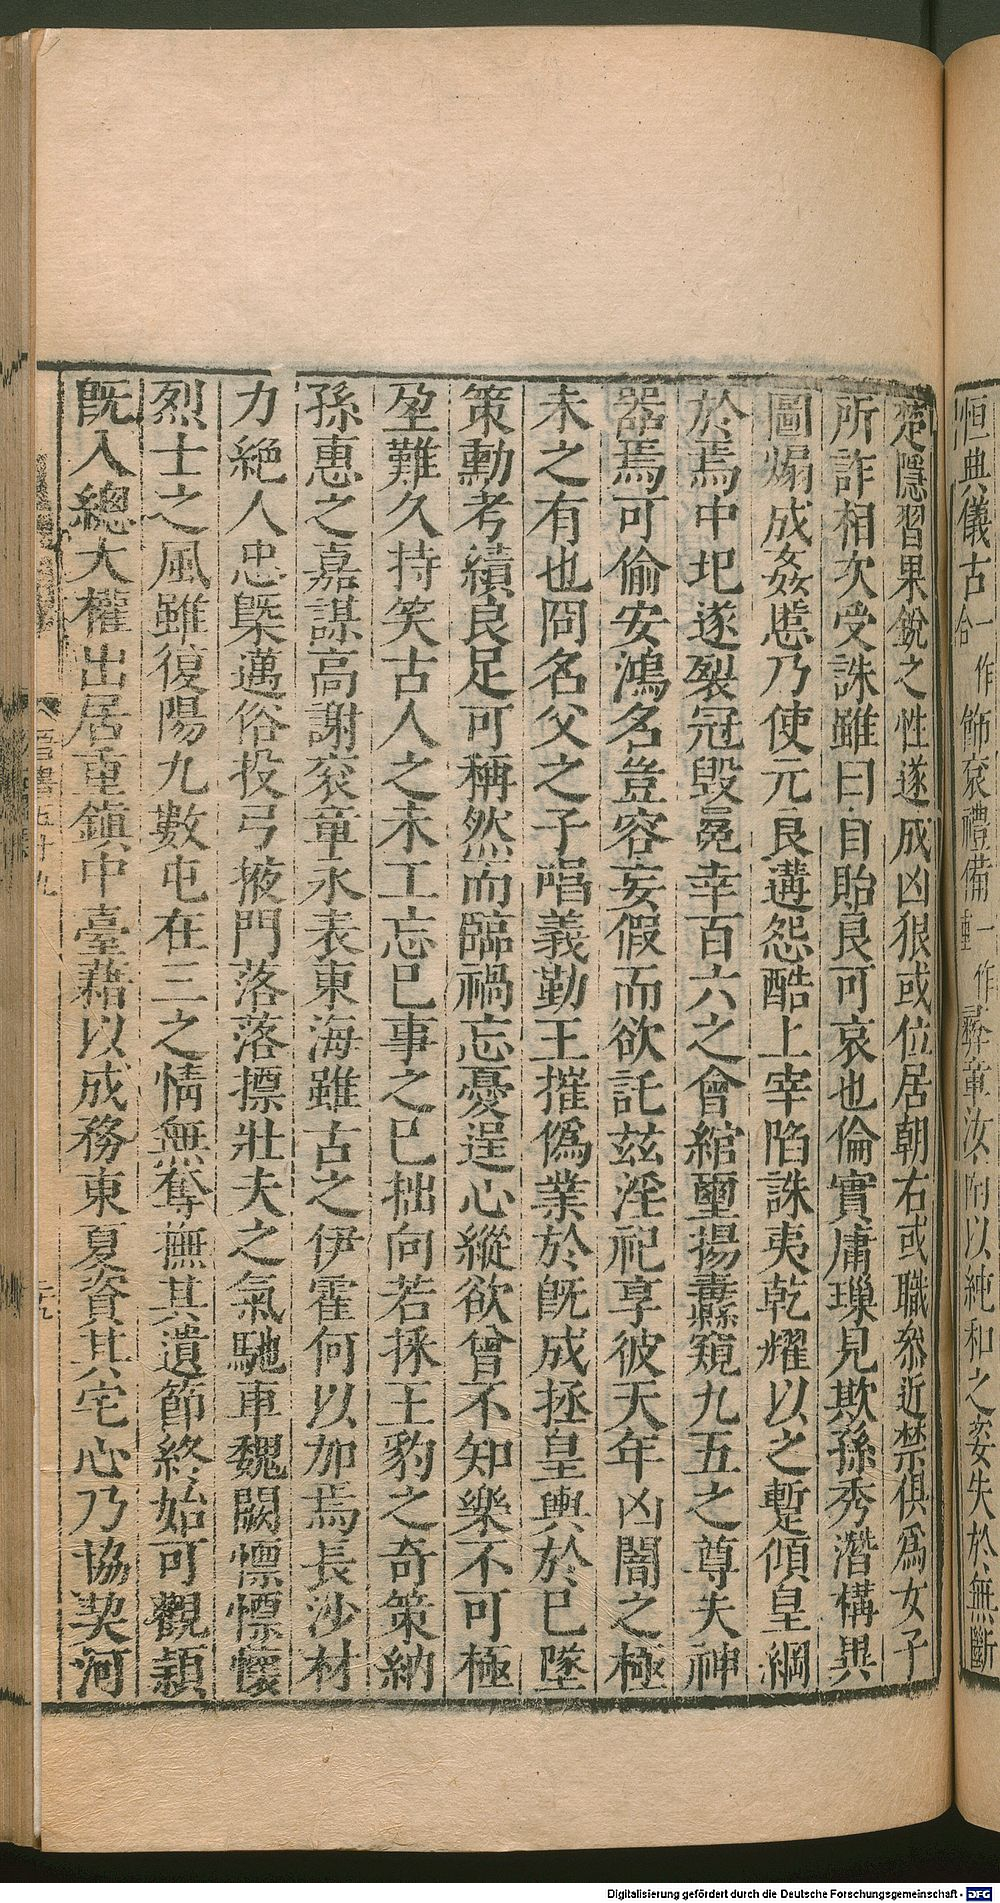 恒典儀古一作合飾衮禮備一作重彞章汝南以純和之姿失於無斷
楚隱習果銳之性遂成凶狠或位居朝右或職參近禁俱爲女子
所詐相次受誅雖曰自貽良可哀也倫實庸璅見欺孫秀潛構異
圖煽成姦慝乃使元良遘怨酷上宰陷誅夷乾耀以之蹔傾皇綱
於焉中圯遂裂冠毀冕幸百六之會綰璽揚纛窺九五之尊夫神
器焉可偷安鴻名豈容妄假而欲託茲淫祀享彼天年凶闇之極
未之有也冏名父之子唱義勤王摧僞業於旣成拯皇輿於已墜
策勳考績良足可稱然而臨禍忘憂逞心縱欲曾不知樂不可極
盈難久持笑古人之未工忘已事之已拙向若採王豹之奇策納
孫惠之嘉謀高謝衮章永表東海雖古之伊霍何以加焉長沙材
力絕人忠槩邁俗投弓掖門落落摽壯夫之氣馳車魏闕懍懍懷
烈士之風雖復陽九數屯在三之情無奪撫其遺節終始可觀穎
旣入總大權出居重鎭中臺藉以成務東夏資其宅心乃協契河
晉書五十九
Digitalisierung gefördert durch die Deutsche Forschungsgemeinschaft - DFG